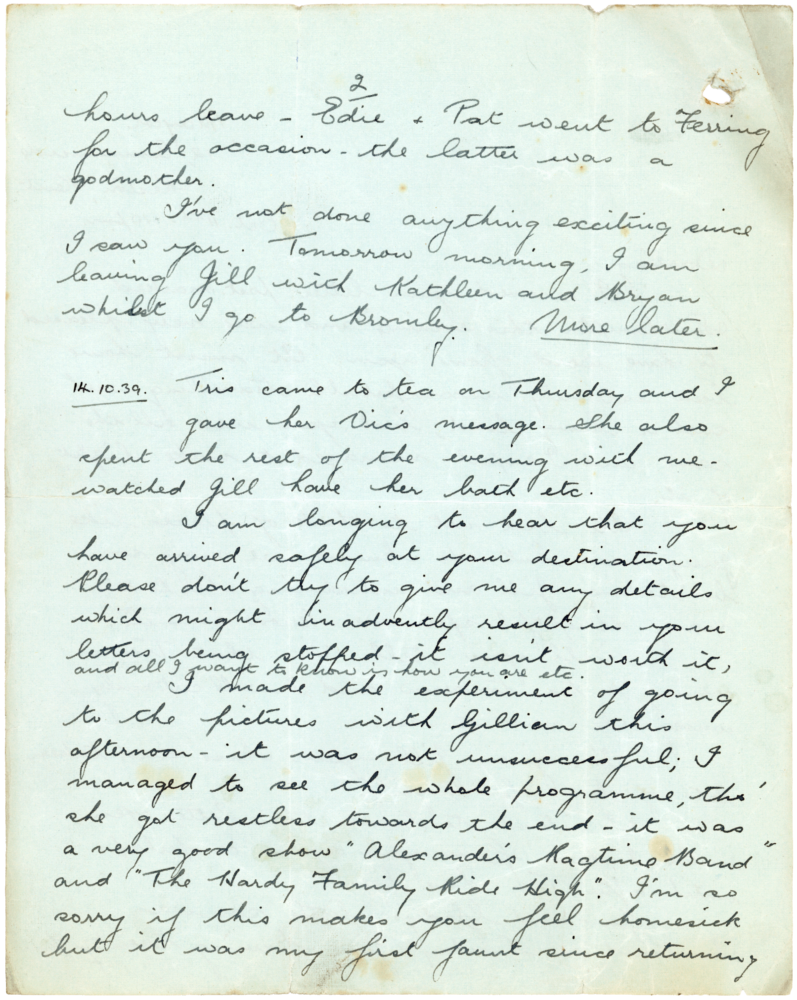 2
hours leave - Edie + Pat went to Ferring
for the occasion - the latter was a
godmother.
I've not done anything exciting since
I saw you. Tomorrow morning, I am
leaving Jill with Kathleen and Bryan
whilst I go to Bromley. More later.
14.10.39. Iris came to tea on Thursday and I
gave her Vic's message. She also
spent the rest of the evening with me -
watched Jill have her bath etc.
I am longing to hear that you
have arrived safely at your destination.
Please don't try to give me any details
which might inadvently result in your
letters being stopped - it isn't worth it,
and all I want to know is how you are etc.
I made the experiment of going
to the pictures with Gillian this
afternoon - it was not unsuccessful; I
managed to see the whole programme, tho'
she got restless towards the end - it was
a very good show "Alexander's Ragtime Band"
and "The Hardy Family Ride High". I'm so
sorry if this makes you feel homesick
but it was my first jaunt since returning